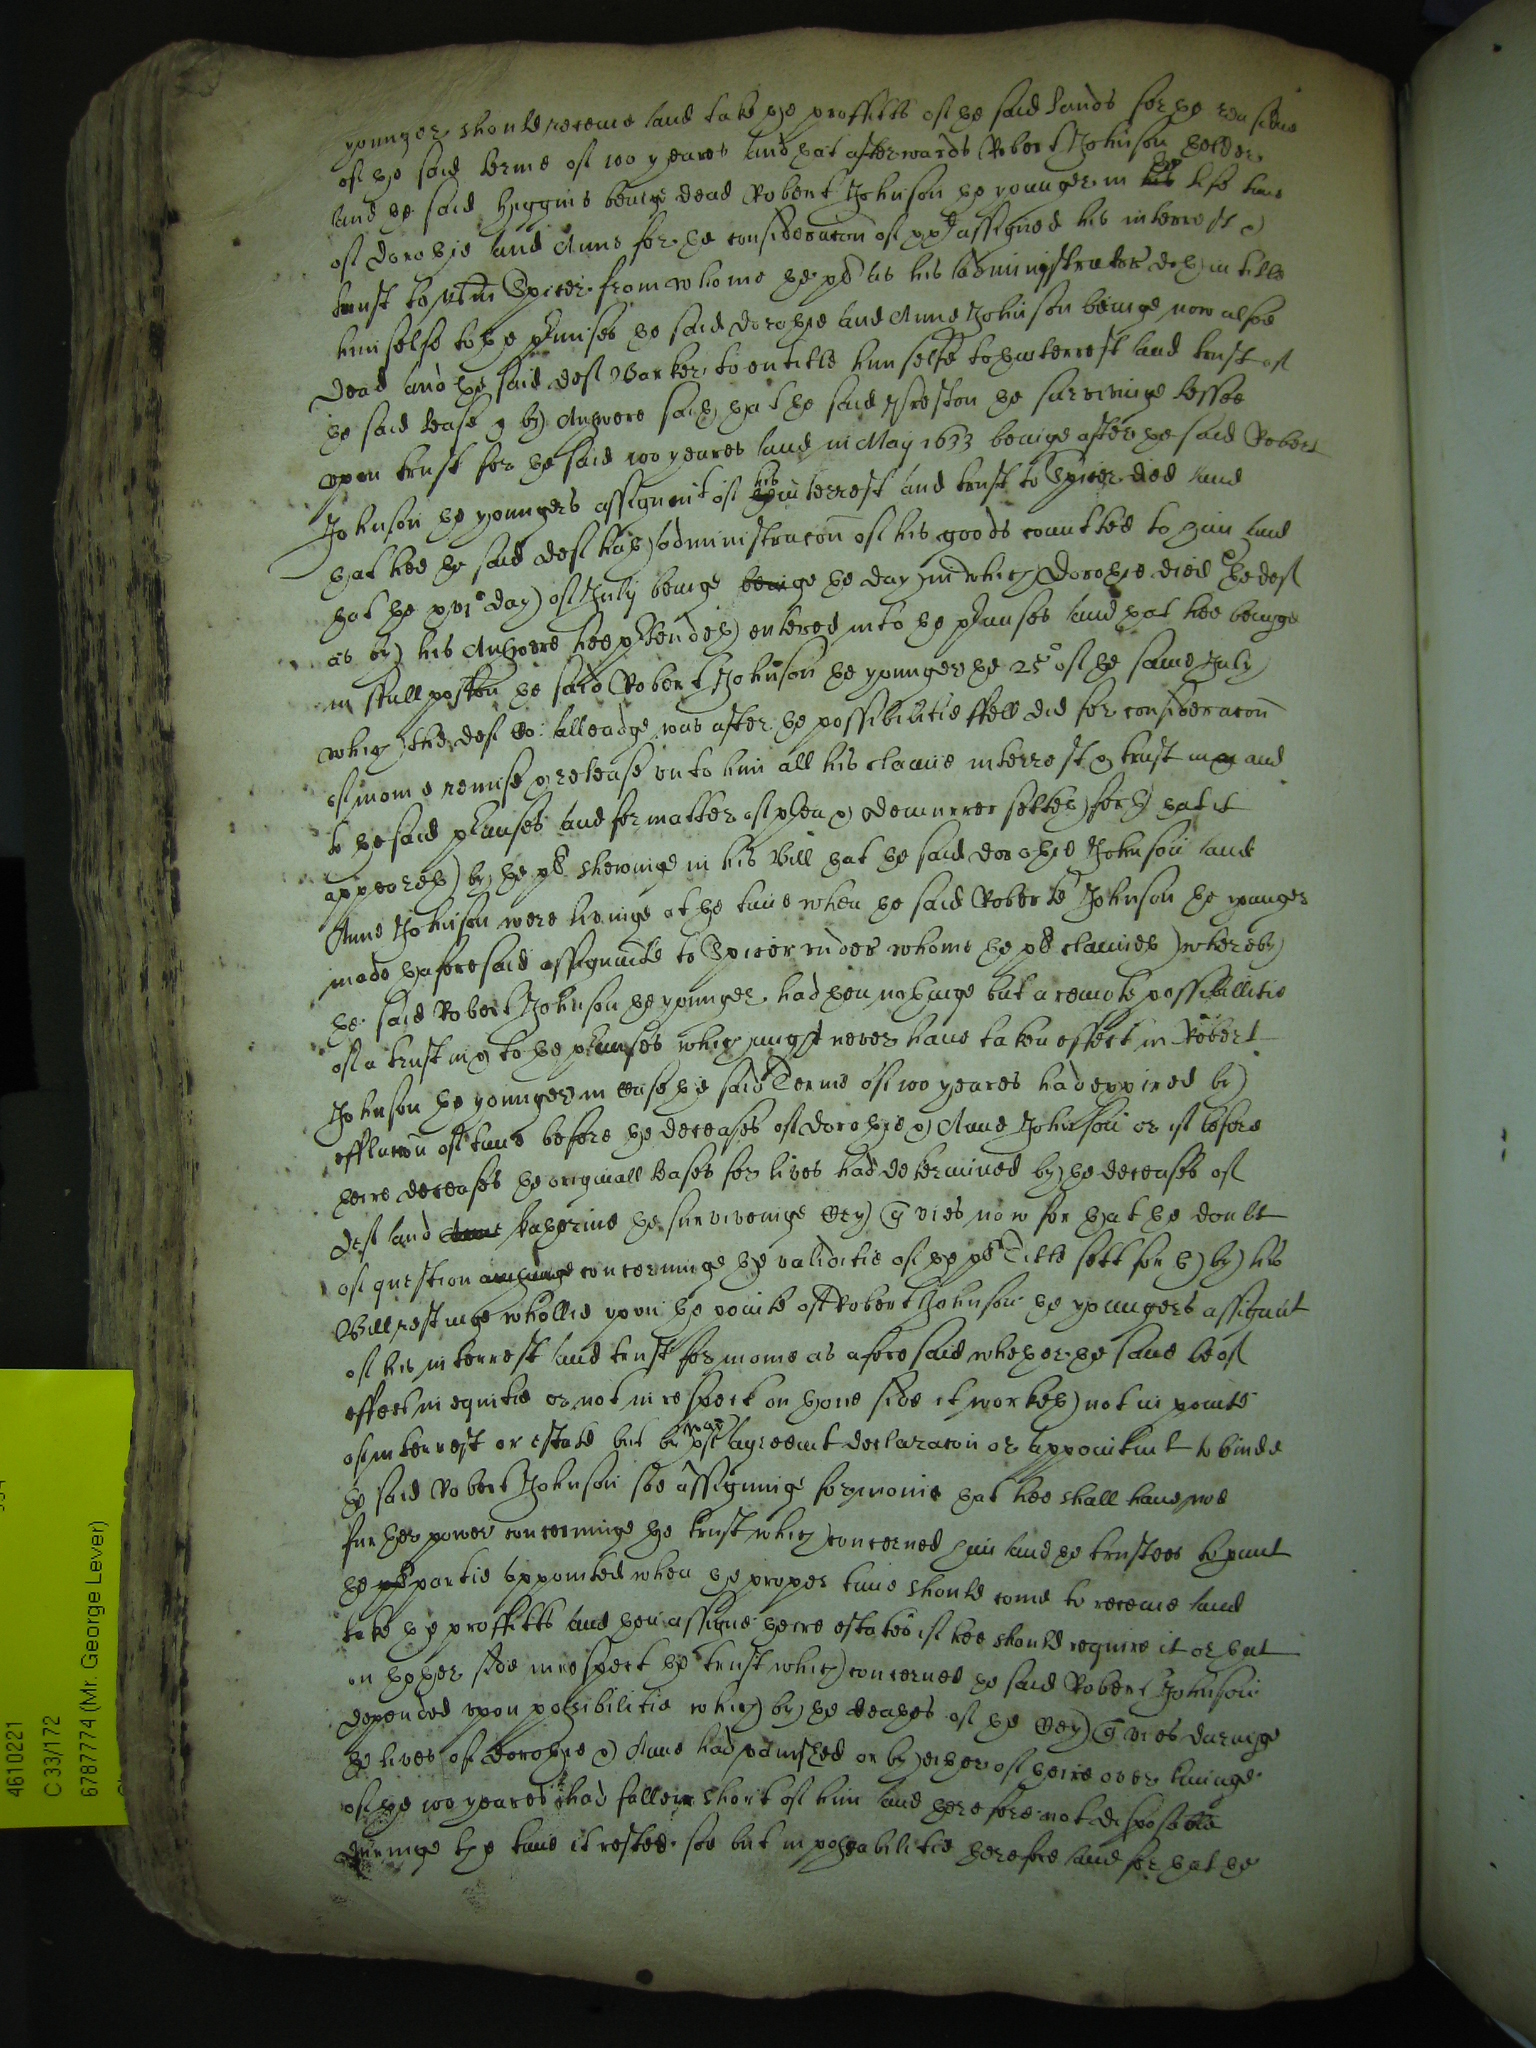 younger should receive and take the proffitts of the said lands for the residue
of the said terme of 100 yeares And that afterwards Robert Johnson thelder
and the said Higgins beinge dead Robert Johnson the younger in the life time
of Dorothie and Anne for the consideracon of assigned his interrest &
trust to Wm Spicer from whome the plt as his administrator doth intitle
himselfe to the pmisses the said Dorothie and Anne Johnson beinge now alsoe
dead And the said deft Barker to entitle himselfe to thinterrest and trust of
the said lease by Answere saith that the said Preston the surviveinge lessee
vpon trust for the said 100 yeares and in May 1633 beinge after the said Robert
Johnson the youngers assignemt of his interrest and trust to Spicer died and
that hee the said deft hath administracon of his goods comitted to him and
that the xvio day of July beinge the day in which Dorothie died the deft
as by his Answere hee ptendeth entered into the pmisses and that hee beinge
in full possion the said Robert Johnson the younger the 25o of the same July
which the deft alleadge was after the possibilitie ffell did for consideracon
of monie remise & release vnto him all his claime interrest & trust in and
to the said pmisses and for matter of plea & demurrer setteth forth that it
appeareth by the plts shewinge in his Bill that the said Dorothie Johnson and
Anne Johnson were liveinge at the time when the said Robert Johnson the younger
made thaforesaid assignemte to Spicer vnder whome the plt claimeth whereby
the said Robert Johnson the younger had then nothinge but a remote possibillitie
of a trust in & to the pmisses which might never have taken effect in Robert
Johnson the younger in case the said Terme of 100 yeares had expired by
effluccon of time before the deceases of Dorothie & Anne Johnson or if before
theire deceases the originall leases for lives had determined by the deceases of
and Katherine the surviveinge Cey q vies now for that the doubt
of question concerninge the validitie of the plts Title sett forth by his
Bill restinge whollie vpon the pointe of Robert Johnson the youngers assignmt
of his interrest and trust for monie as aforesaid whether the same be of
effect in equitie or not in respect on thone side it worketh not in pointe
of interrest or estate but by way of agreemt declaracon or appointmt to binde
the said Robert Johnson soe assigninge for monie that hee shall have noe
further power concerninge the trust which concerned him and the trustees to pmit
the partie appointed when the proper time should come to receive and
take the proffitts and then assigne theire estates if hee should require it or that
on thother side in respect the trust which concerned the said Robert Johnson
depended vpon possibilitie which by the deathes of the Cey q vies duringe
the lives of Dorothie & Anne had vanished or by either of theire over liveinge
of the 100 yeares had fallen short of him and therefore not disposable
duringe the time it rested soe but in possibilitie therefore and for that the
4610221
C 33/172
6787774 (Mr. George Lever)